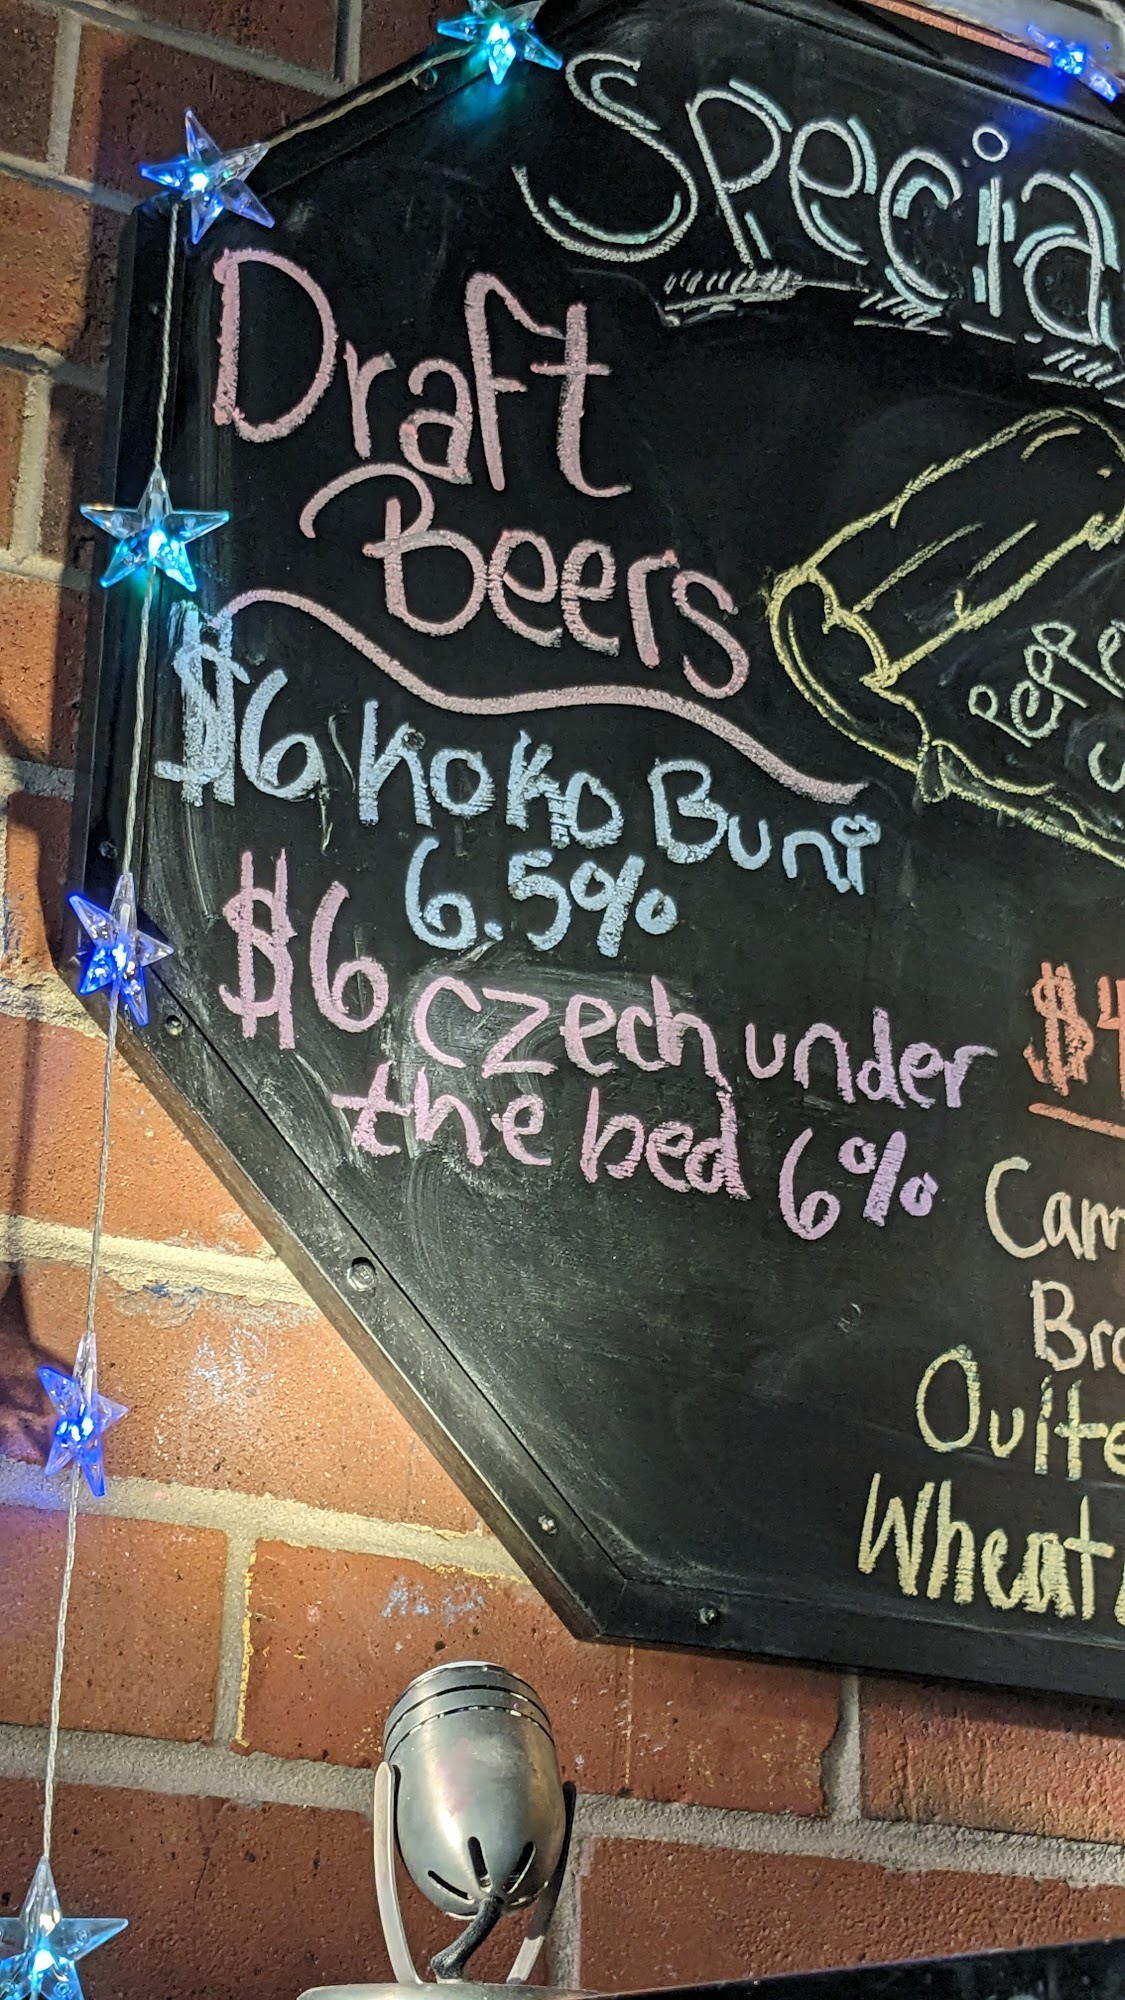 Specia
Draft
Beers
$6 Koko Buni
6.5%
$6 czech under
the bed 6%
$4
Ouite
Wheat